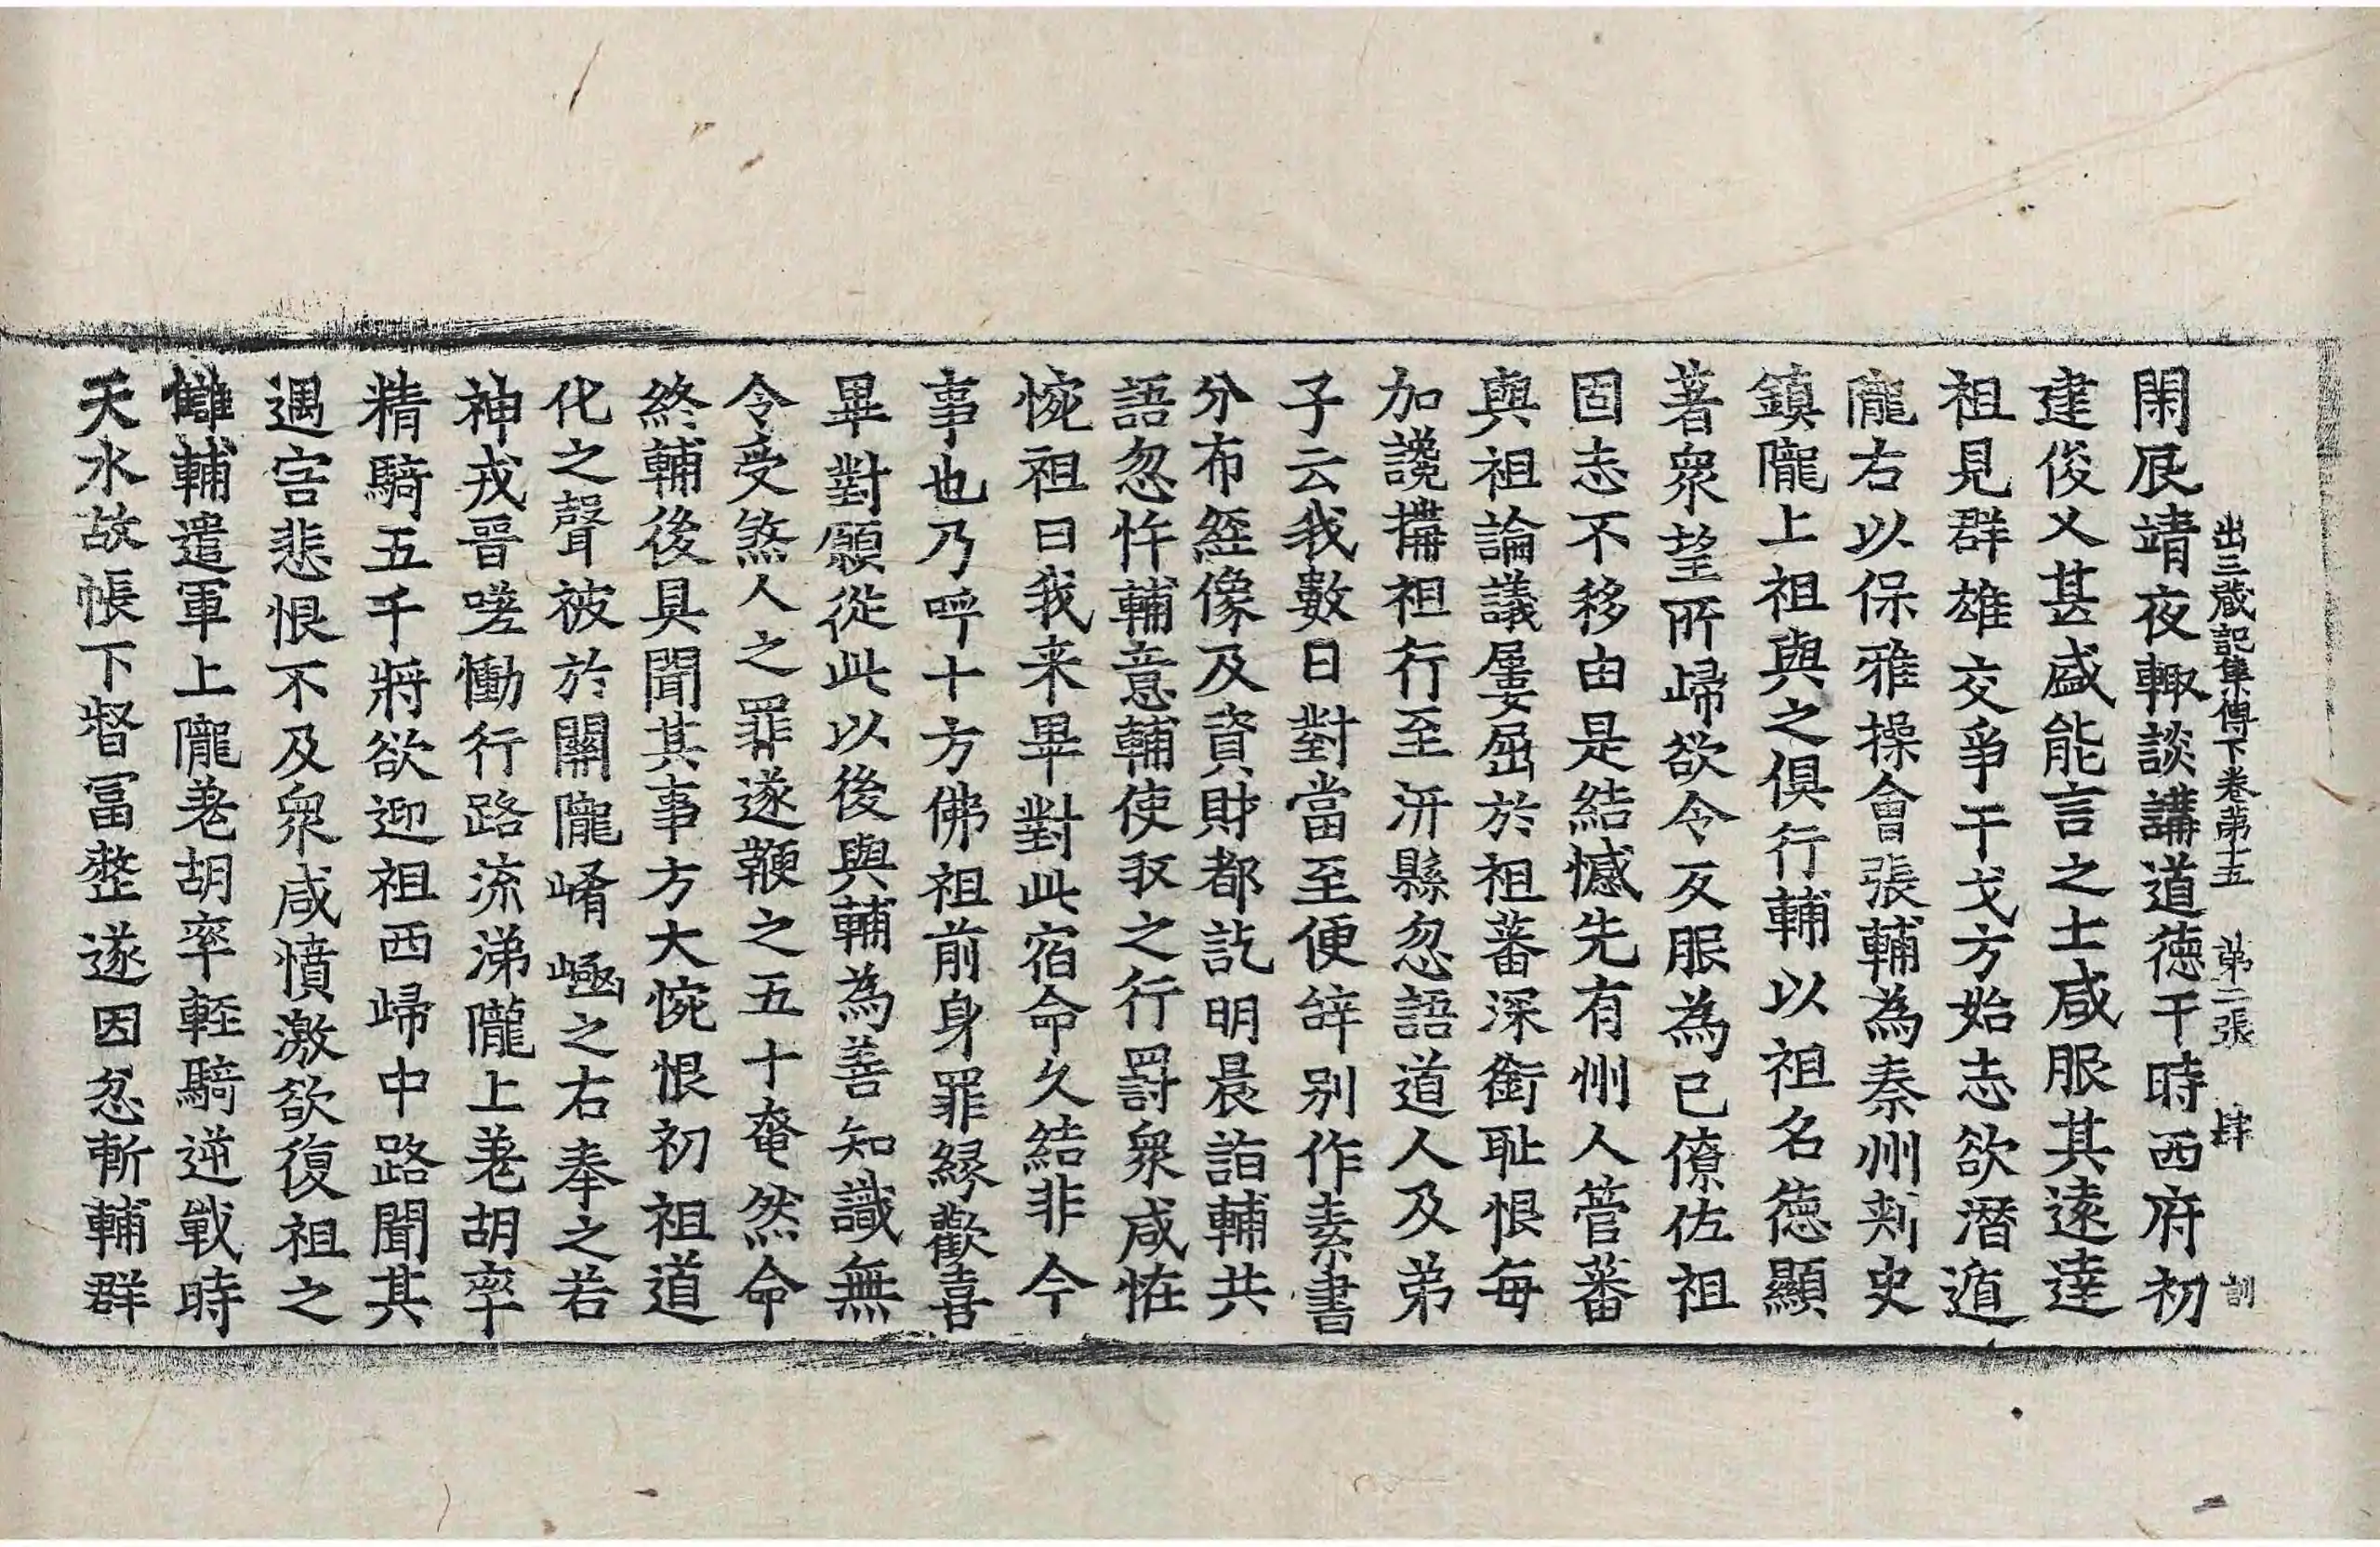 出三蔵記集傳下卷苐十五 苐二張 肆 訓
閑辰靖夜輙談講道徳于時西府初
建俊乂甚盛能言之士咸服其遠達
祖見群雄交爭干戈方始志欲潛遁
隴右以保雅操會張輔為秦州刾史
鎮隴上祖與之俱行輔以祖名徳顯
著衆望所歸欲令反服為已僚佐祖
固志不移由是結憾先有州人管蕃
與祖論議屢屈於祖蕃深銜耻恨每
加讒搆祖行至汧縣忽語道人及弟
子云我數日對當至便辝别作素書
分布經像及資財都訖明晨詣輔共
語忽忤輔意輔使収之行罰衆咸恠
惋祖曰我来畢對此宿命久結非今
事也乃呼十方佛祖前身罪縁歡喜
畢對願從此以後與輔為善知識無
令受煞人之罪遂鞭之五十奄然命
終輔後具聞其事方大惋恨初祖道
化之聲被於關隴崤𡷗之右奉之若
神戎晋嗟慟行路流涕隴上羌胡率
精騎五千將欲迎祖西歸中路聞其
遇害悲恨不及衆咸憤激欲復祖之
讎輔遣軍上隴羌胡率輕騎逆戰時
天水故帳下督冨整遂因忿斬輔群